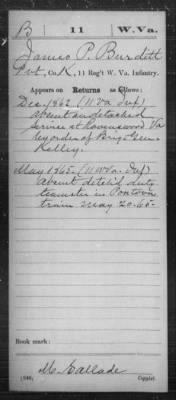 B | 11 | W.Va.
James P. Burditt
Pvt, Co. K, 11 Reg't W. Va. Infantry.
Appears on Returns as follows:
Dec. 1862 (11 W Va Inf)
absent on detached
service at Ravenswood Va
by order of Brig. Gen.
Kelley.
May 1865 (11 W Va. Inf)
Absent detch'd duty
teamster in Pontoon
train May 20-65-
Book mark:
(546)
Copyist.